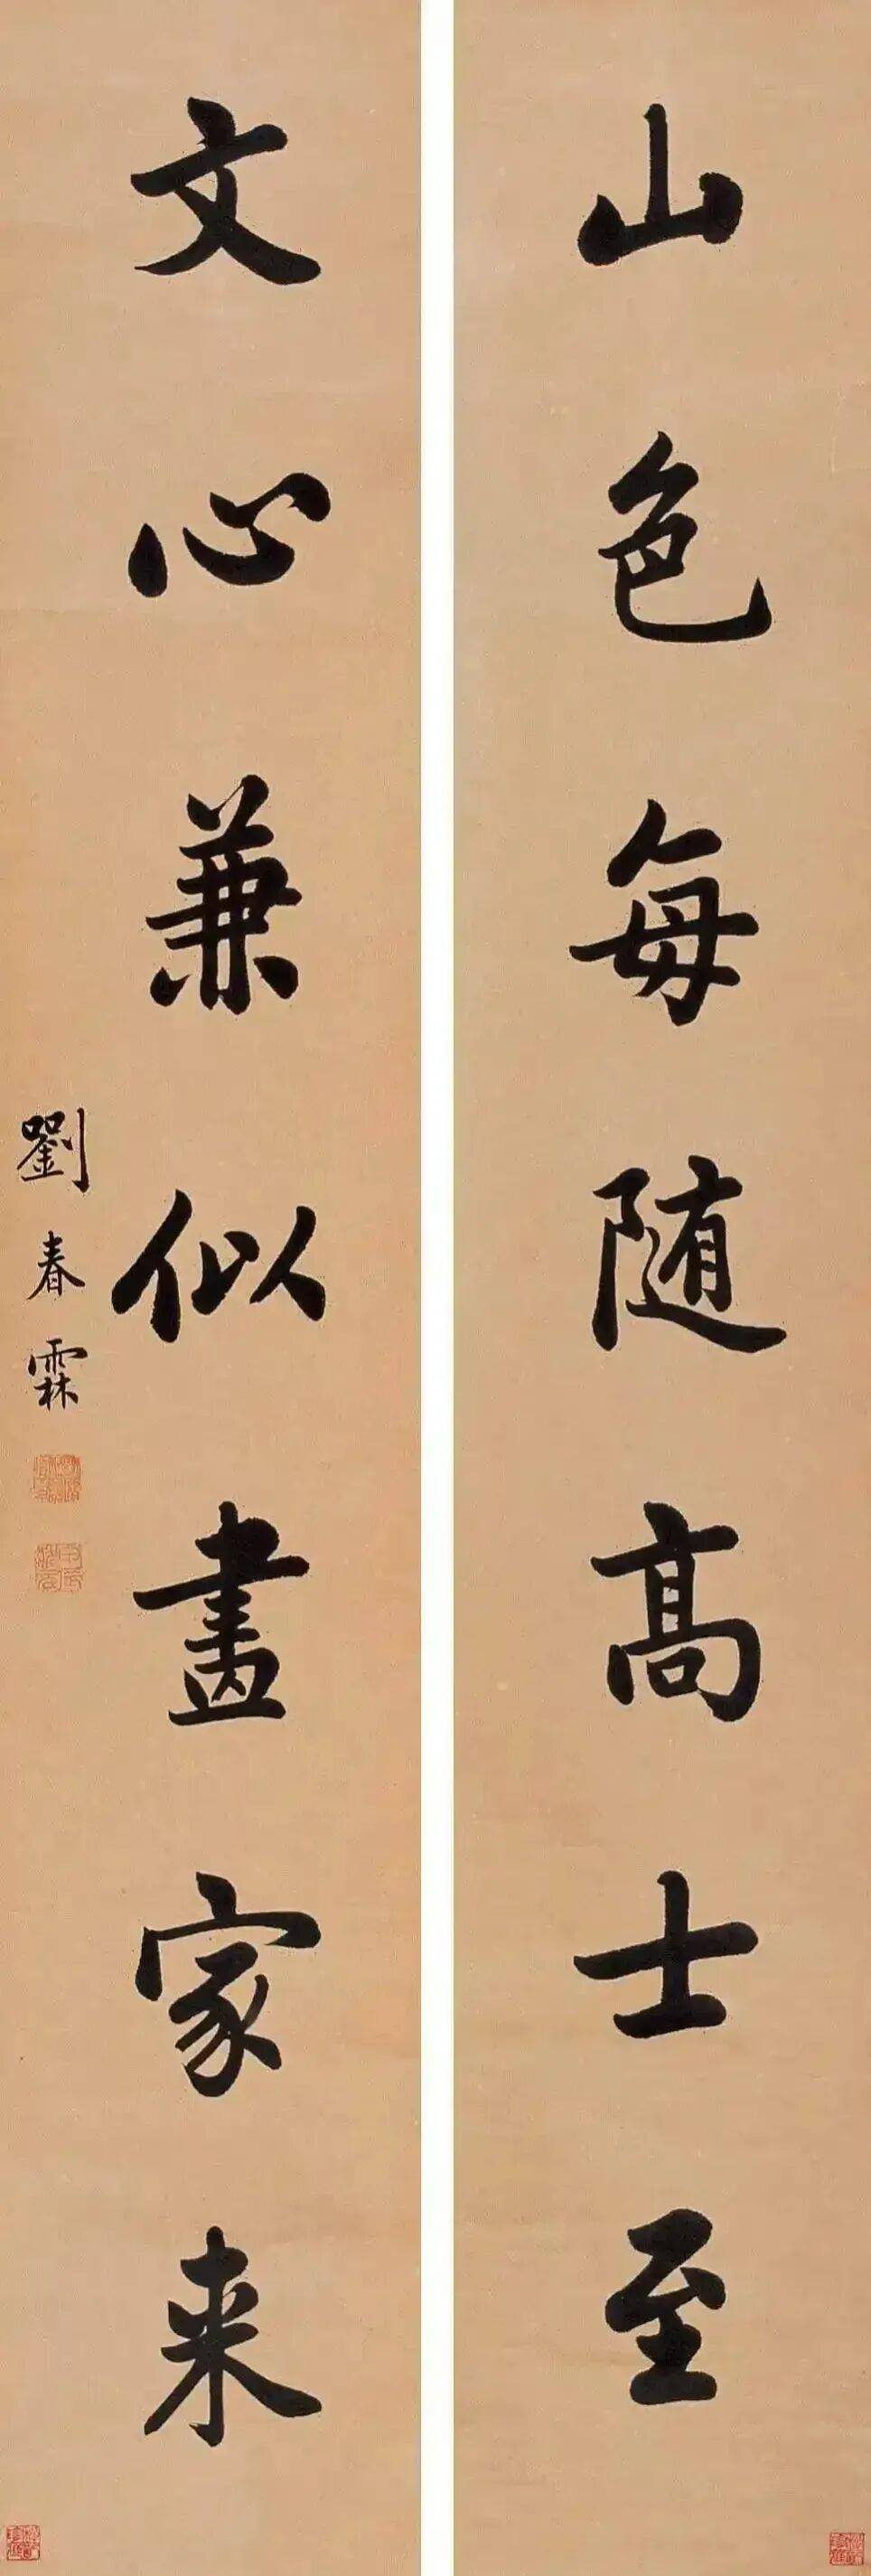 山色每随高士至
文心兼似畫家来
劉春霖